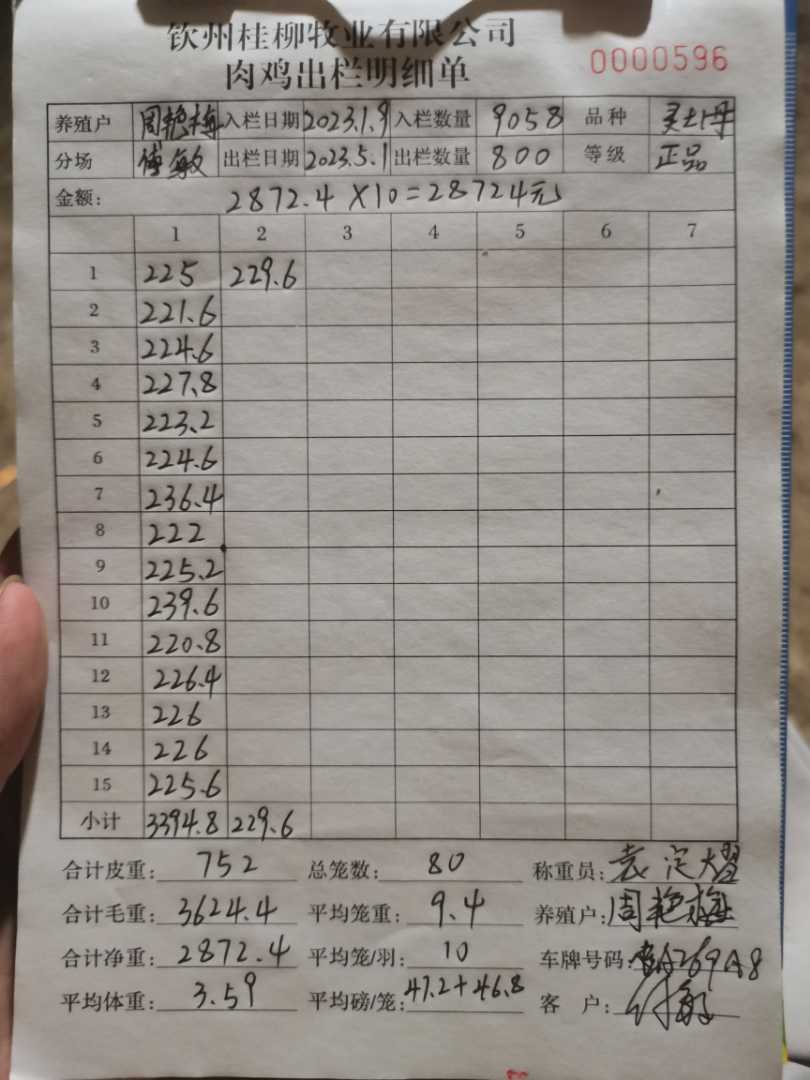 钦州桂柳牧业有限公司
肉鸡出栏明细单
0000596
养殖户 周艳梅 入栏日期 2023.1.9 入栏数量 9058 品种
分场 傅敏 出栏日期 2023.5.1 出栏数量 800 等级 正品
金额: 2872.4×10=28724元
1 2 3 4 5 6 7
1 225 229.6
2 221.6
3 224.6
4 227.8
5 223.2
6 224.6
7 236.4
8 222
9 225.2
10 239.6
11 220.8
12 226.4
13 226
14 226
15 225.6
小计 3394.8 229.6
合计皮重: 752 总笼数: 80 称重员:
合计毛重: 3624.4 平均笼重: 9.4 养殖户: 周艳梅
合计净重: 2872.4 平均笼/羽: 10 车牌号码:
平均体重: 3.59 平均磅/笼: 47.2+46.8 客 户: